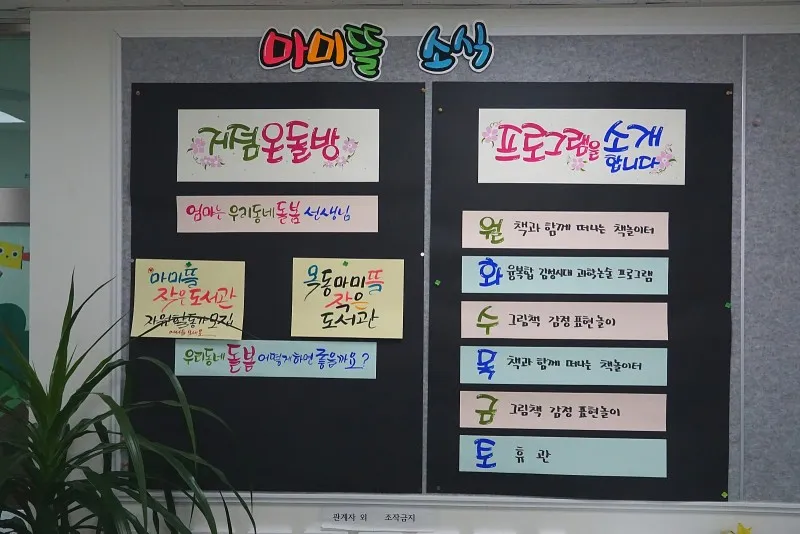 마미뜰 소식
거점온돌방
엄마는 우리동네 돌봄 선생님
마미뜰
작은도서관
자원활동가모집
옥동마미뜰
작은
도서관
우리동네 돌봄 어떻게하면 좋을까요?
프로그램을 소개
합니다
월 책과 함께 떠나는 책놀이터
화 융복합 감성시대 과학논술 프로그램
수 그림책 감정 표현놀이
목 책과 함께 떠나는 책놀이터
금 그림책 감정 표현놀이
토 휴관
관계자 외 조작금지